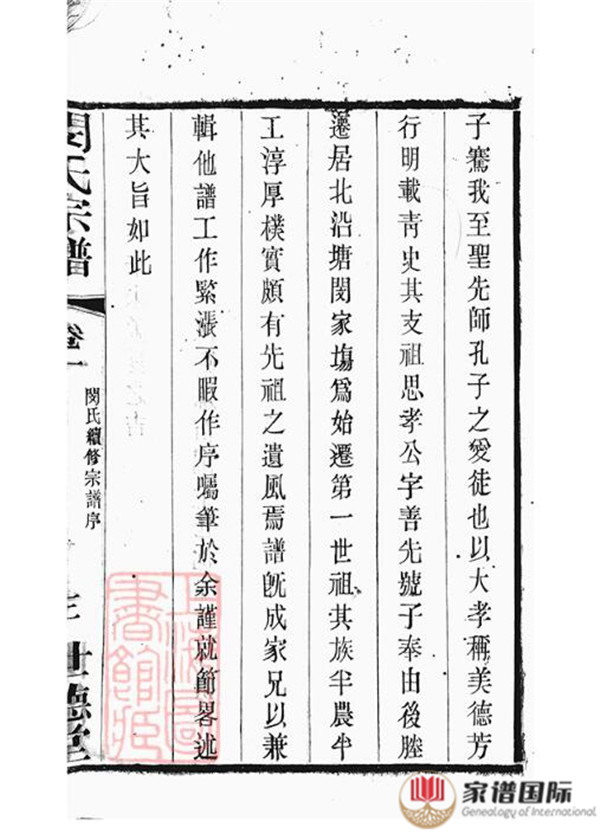 子騫我至聖先師孔子之愛徒也以大孝稱美德芳
行明載青史其支祖思孝公字善先號子奉由後塍
遷居北沿塘閔家塲爲始遷第一世祖其族半農半
工淳厚樸實頗有先祖之遺風焉譜旣成家兄以兼
輯他譜工作緊漲不暇作序囑筆於余謹就節畧述
其大旨如此
閔氏宗譜
卷一
閔氏續修宗譜序
世德堂
上海圖書館藏
家谱国际
Genealogy of International